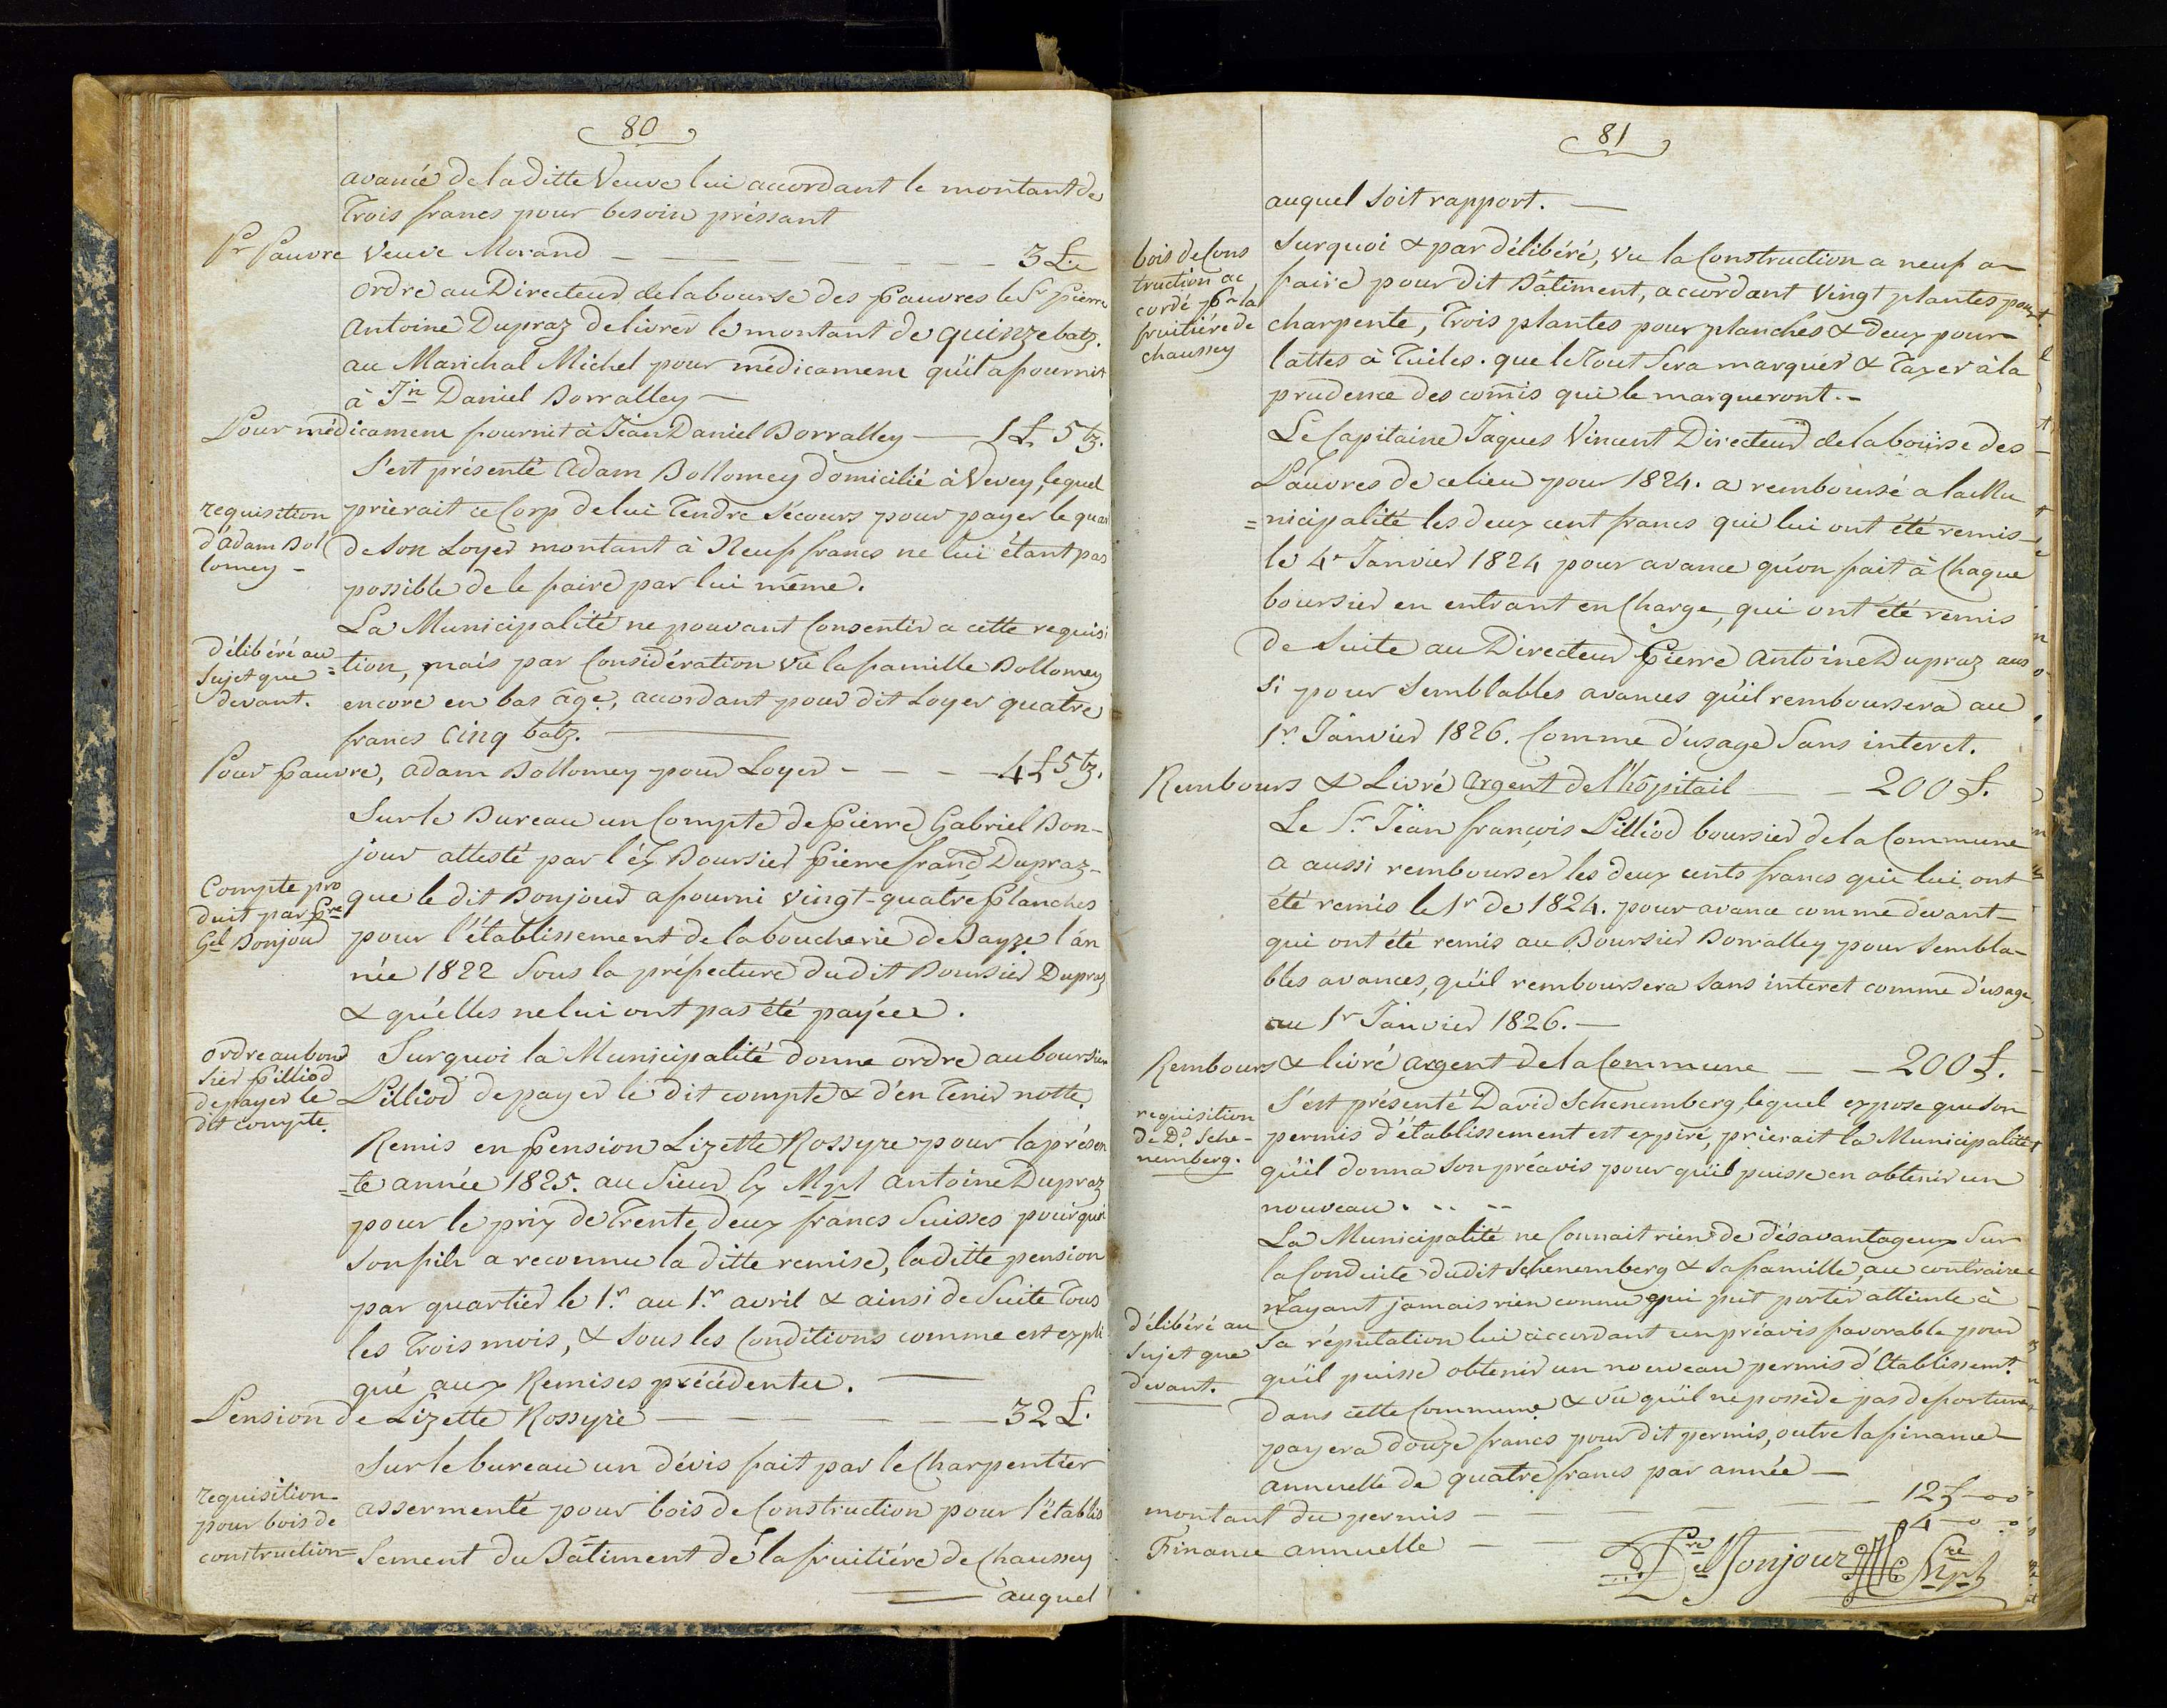 80
avancé de la ditte Veuve lui accordant le montant de
Trois francs pour besoin préssant
Pr Pauvre Veuve Morand — 3 £.
ordre au Directeur de la bourse des pauvres le Sr Pierre
Antoine Dupraz delivrér le montant de quinze batz.
au Marichal Michel pour médicament qu'il a fournit
à Jn Daniel Borralley —
Pour médicament fournit à Jean Daniel Borralley — 1 £ 5 tz.
S'est présenté Adam Bollomey domicilié à Vevey, lequel
requisition
d'Adam Bol
lomey -
prierait ce Corp de lui Tendre Sécours pour payer le quar
de Son Loyer montant à Neuf francs ne lui étant pas
possible de le faire par lui même.
La Municipalité ne pouvant Consentir a cette requisi
délibéré au
Sujet que
devant.
=tion, mais par Considération vu la famille Bollomey
encore en bas âge, accordant pour dit Loyer quatre
francs Cinq batz. —
Pour pauvre, Adam Bollomey pour Loyer - - - - 4 £ 5 tz.
Sur le Bureau un Compte de Pierre Gabriel Bon-
jour attesté par l'éx Boursier Pierre franç Dupraz-
Compte pro
duit par Pre
Gel Bonjour
que le dit Bonjour a fourni Vingt-quatre Planches
pour l'établissement de la boucherie de Bayze l'án
née 1822 Sous la préfecture du dit Boursier Dupraz
& qu'elles ne lui ont pas été payées.
ordre au bour
sier Pilliod
de payer le
dit compte.
Surquoi la Municipalité donne ordre au boursier
Pilliod de payer le dit compte & d'én Tenir notte.
Remis en Pension Lizette Rossyre pour la présen
=te année 1825. au Sieur Ex Mpl Antoine Dupraz
pour le prix de Trente deux francs Suisses pour qui
Son fils a reconnu la ditte remise, la ditte pension
par quartier le 1r au 1r avril & ainsi de Suite Tous
les Trois mois, & Sous les Conditions comme est expli
qué aux Remises précédentes. —
Pension de Lizette Rossyre — 32 £.
Sur le bureau un dévis fait par le Charpentier
requisition
pour bois de
construction
assermenté pour bois de Construction pour l'établis
Sement du Bâtiment de la fruitiére de Chaussey
auquel
81
auquel Soit rapport. —
bois de Cons
truction ac
cordé Pr la
fruitière de
chaussey
Surquoi & par délibéré, vu la Construction a neuf a
faire pour dit Bâtiment, accordant Vingt plantes pour
charpente, Trois plantes pour planches & deux pour
lattes à Tuiles. que le Tout Sera marquér & Taxer à la
prudence des comis qui le marqueront. -
Le Capitaine Jaques Vincent Directeur de la bourse des
Pauvres de ce lieu pour 1824. a remboursé a la Mu
=nicipalité les deux cent francs qui lui ont été remis
le 4r Janvier 1824 pour avance qu'on fait à Chaque
boursier en entrant en Charge, qui ont été remis
de Suite au Directeur Pierre Antoine Dupraz aus
si pour Semblables avances qu'il remboursera au
1r Janvier 1826. Comme d'usage Sans interet.
Rembours & Livré Argent de l'hôpitail — - 200 £.
Le Sr Jean françois Pilliod boursier de la Commune
a aussi rembourser les deux cents francs qui lui ont
été remis le 1r de 1824. pour avance comme devant-
qui ont été remis au Boursier Borralley pour Sembla-
bles avances, qu'il remboursera sans interet comme d'usage
au 1r Janvier 1826. —
Rembours & livré argent de la Commune — - 200 £.
requisition
de Dd Sche-
nemberg.
S'est présenté David Schenemberg, lequel expose que Son
permis d'établissement est expiré, prierait la Municipalité
qu'il donna Son préavis pour qu'il puisse en obtenir un
nouveau. . . --
La Municipalité ne Connait rien de désavantageux Sur
la Conduite du dit Schenemberg & Sa famille, au contraire
n'ayant jamais rien connu qui put porter atteinte à
délibéré au
Sujet que
devant.
Sa réputation lui accordant un préavis favorable pour
qu'il puisse obtenir un nouveau permis d'Etablissemt.
dans cette Commune & vu qu'il ne possède pas de portune
payera douze francs pour dit permis, outre la finance
annuelle de quatre francs par année —
montant du permis - — 12 £ -o-o
Finance annuelle - — 4 -o -o
Pre Gel Bonjour Sre Mpl